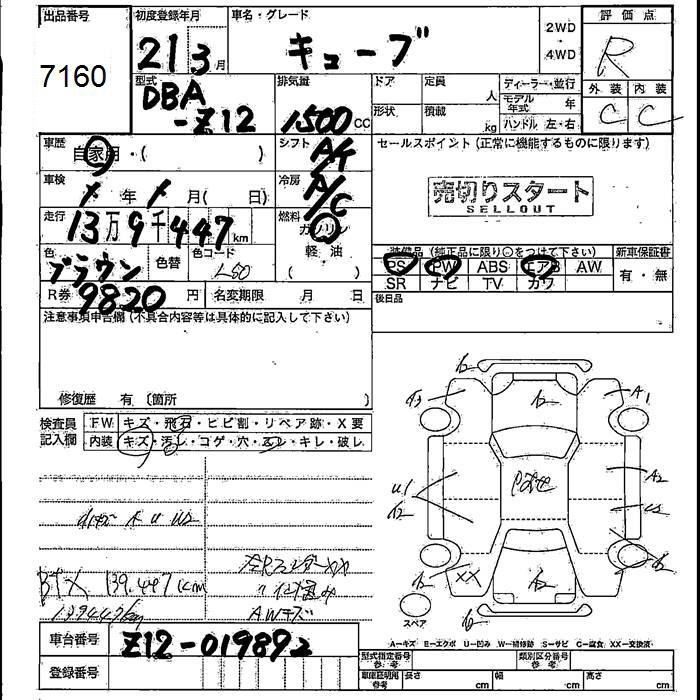 出品番号 初度登録年月 車名・グレード 評価点
7160
21 3月 キューブ 2WD・4WD R
型式 排気量 ドア 定員 人 ディーラー・並行 外装 内装
DBA-Z12 1500CC 形状 積載 kg モデル年式 年 C C
ハンドル 左・右
車歴 自家用・( ) シフト A/T セールスポイント (正常に機能するものに限ります)
車検 / 年 / 月( 日) 冷房 A/C 売切りスタート
SELLOUT
走行 13万9千447km 燃料 ガソリン
色 ブラウン 色替 色コード 軽・油 装備品 (純正品に限り○をつけて下さい) 新車保証書
( ) PS PW ABS エアB AW 有・無
SR ナビ TV カワ
R券 9820円 名変期限 月 日 後日品
注意事項申告欄 (不具合内容等は具体的に記入して下さい)
修復歴 有 〔箇所 〕
検査員記入欄 FW キズ・飛石・ヒビ割・リペア跡・X要
内装 キズ・汚レ・コゲ・穴・スレ・キレ・破レ
A1
A2
U1
XX
139.447km
139447km
AWキズ
スペア
A=キズ E=エクボ U=凹み W=補修跡 S=サビ C=腐食 XX=交換済
車台番号 Z12-019892
登録番号
型式指定番号 参考 類別区分番号 参考
車庫証明用 参考 長さ cm 幅 cm 高さ cm